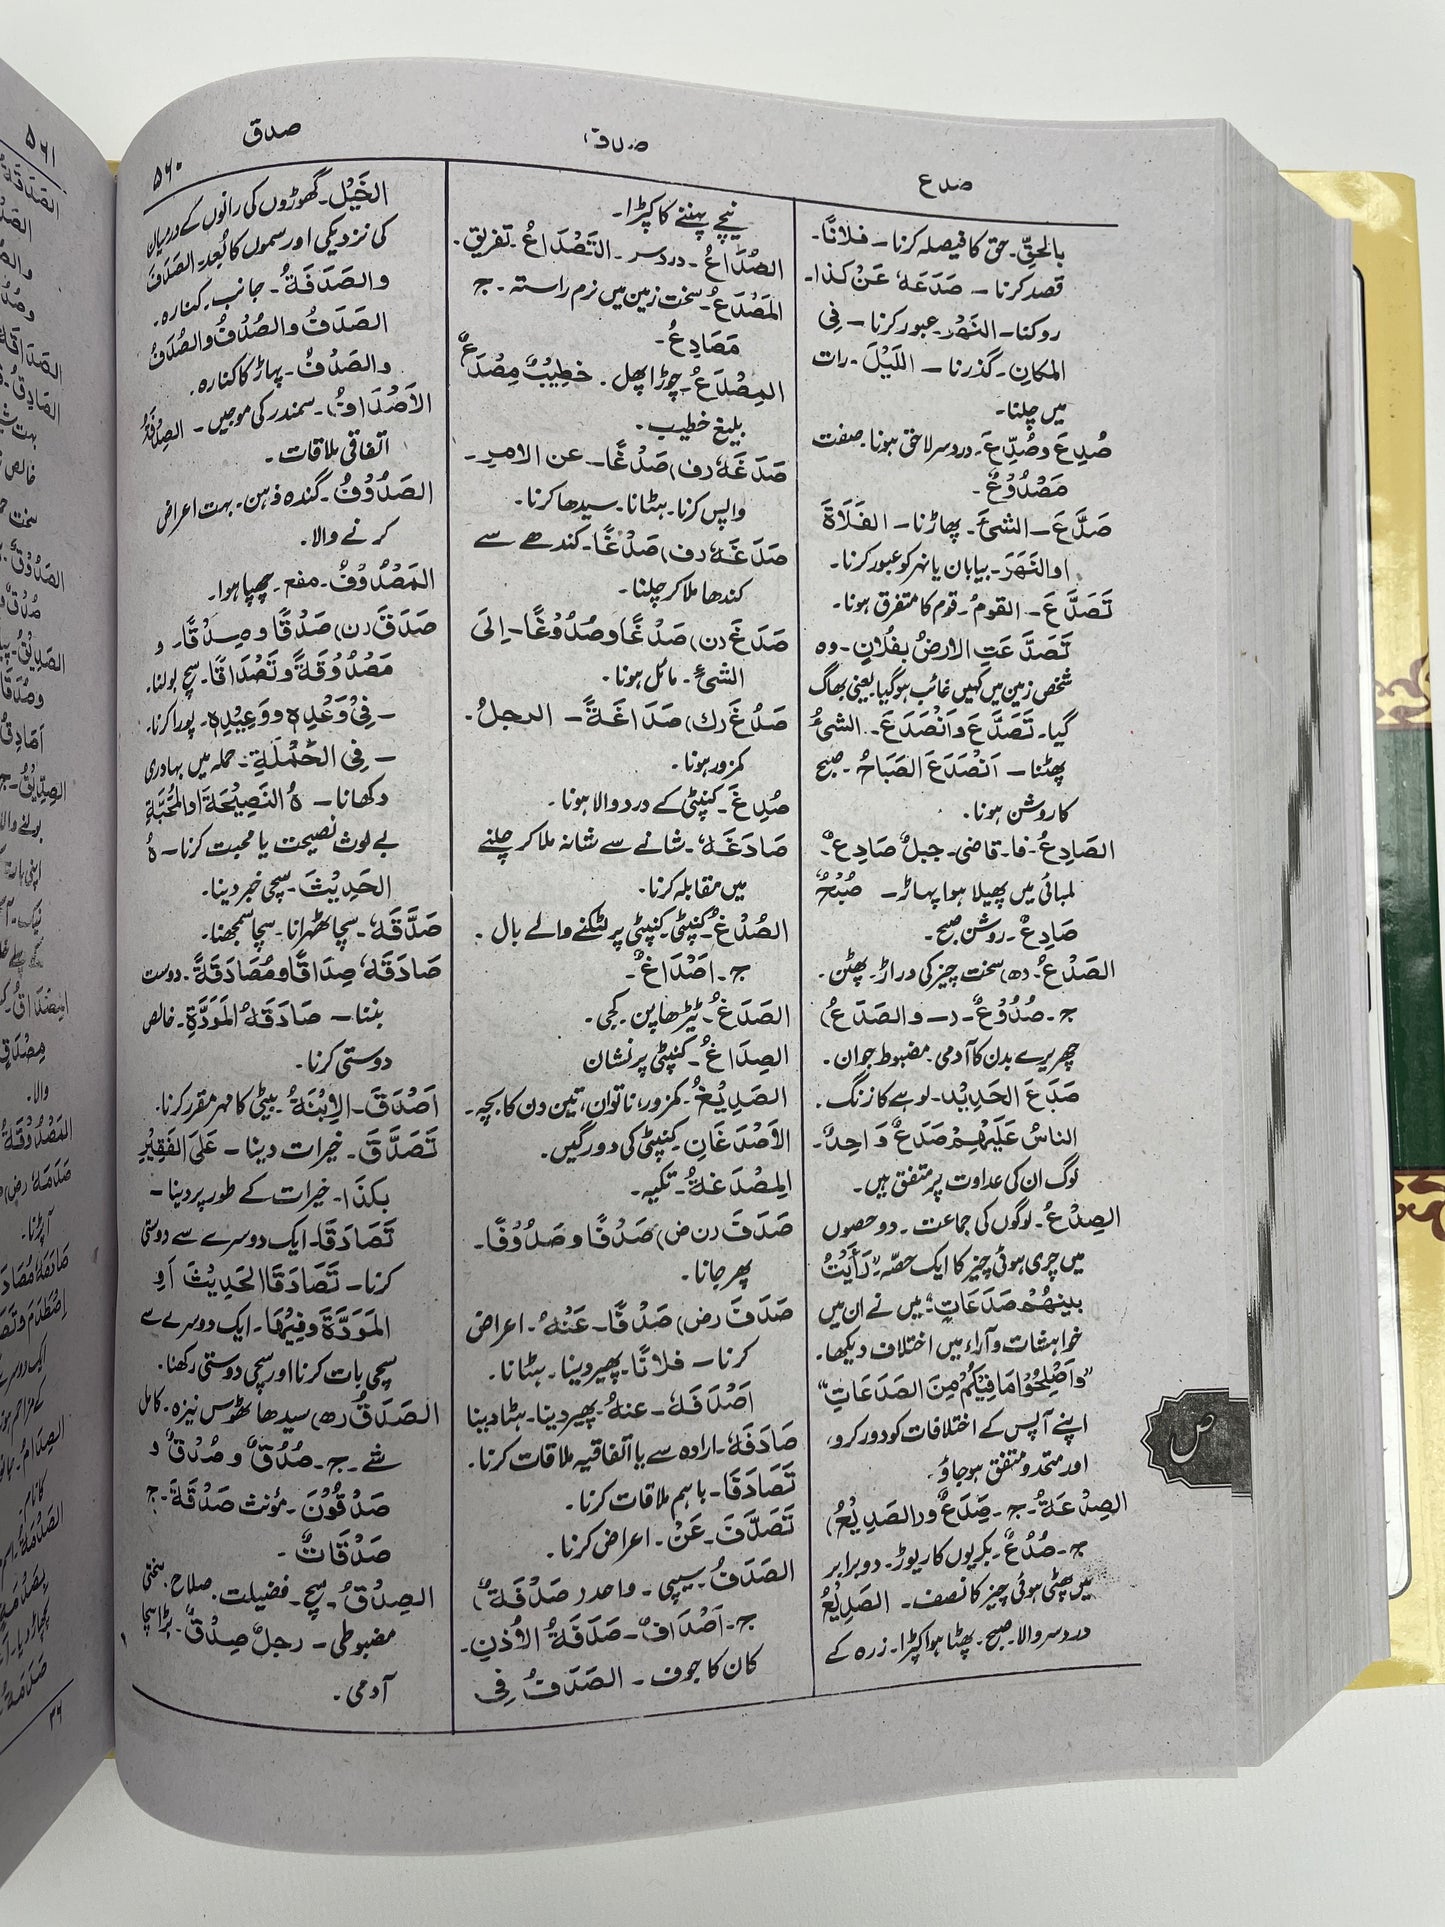 صدع
صدف
صدق
۵۶۰
بالحقِّ۔ حق کا فیصلہ کرنا – فلانًا۔
قصد کرنا – صَدَعَهٗ عَنْ کذا۔
روکنا – النَهْرَ۔ عبور کرنا – فِی
المکانِ۔ گذرنا – اللَیْلَ۔ رات
میں چلنا۔
صُدِعَ وصُدِّعَ۔ دردسر لاحق ہونا۔ صفت
مَصْدُوْعٌ۔
صَدَّعَ – الشیَٔ۔ پھاڑنا – الفَلَاةَ
اوالنَهَرَ۔ بیابان یا نہر کو عبور کرنا۔
تَصَدَّعَ – القومُ۔ قوم کا متفرق ہونا۔
تَصَدَّعَتِ الارضُ بفُلانٍ۔ وہ
شخص زمین میں کہیں غائب ہوگیا۔ یعنی بھاگ
گیا۔ تَصَدَّعَ وَانْصَدَعَ۔ الشیُٔ
پھٹنا – اَنْصَدَعَ الصَبَاحُ۔ صبح
کا روشن ہونا۔
الصَادِعُ۔ فا۔ قاضی۔ جبلٌ صَادِعٌ
لمبائی میں پھیلا ہوا پہاڑ – صُبْحٌ
صَادِعٌ۔ روشن صبح۔
الصَدْعُ۔ (مص) سخت چیز کی دوراڑ۔ پھٹن۔
ج۔ صُدُوْعٌ۔ (– والصَدَعُ)
چھریرے بدن کا آدمی۔ مضبوط جوان۔
صَدَعَ الحَدِیْد۔ لوہے کا زنگ۔
الناسُ عَلَیْهِمْ صَدَعٌ وَاحِدٌ۔
لوگ ان کی عداوت پر متفق ہیں۔
الصِدْعُ۔ لوگوں کی جماعت۔ دو حصوں
میں چری ہوئی چیز کا ایک حصّہ "رَأَیْتُ
بینهُمْ صَدَعَاتٍ" میں نے ان میں
خواہشات و آراء میں اختلاف دیکھا۔
"وَاَصْلِحُوْا مَا فِیْکُمْ مِنَ الصَدَعَاتِ"
اپنے آپس کے اختلافات کو دور کرو،
اور متحد و متفق ہو جاؤ۔
الصِدْعَةُ۔ ج۔ صِدَعٌ (والصَدِیْعُ)
ج۔ صُدُعٌ۔ بکریوں کا ریوڑ۔ دو برابر
میں پھٹی ہوئی چیز کا نصف۔ الصَدِیْعُ
دردسر والا۔ صبح۔ پھٹا ہوا کپڑا۔ زرہ کے
نیچے پہننے کا کپڑا۔
الصُدَاعُ۔ دردسر۔ التَصْدَاعُ۔ تفریق۔
المَصْدَعُ۔ سخت زمین میں نرم راستہ۔ ج
مَصَادِعُ۔
المِصْدَعُ۔ چوڑا پھل۔ خطِیْبٌ مِصْدَعٌ
بلیغ خطیب۔
صَدَغَهٗ (ف) صَدْغًا – عن الامرِ۔
واپس کرنا۔ ہٹانا۔ سیدھا کرنا۔
صَدَغَهٗ (ف) صَدْغًا۔ کندھے سے
کندھا ملا کر چلنا۔
صَدَغَ (ن) صَدْغًا وصُدُوْغًا – اِلَی
الشیٔ۔ مائل ہونا۔
صَدُغَ (ك) صَدَاغَةً – الرجلُ۔
کمزور ہونا۔
صُدِغَ۔ کنپٹی کے درد والا ہونا۔
صَادَغَهٗ۔ شانے سے شانہ ملا کر چلنے
میں مقابلہ کرنا۔
الصُدْغُ۔ کنپٹی۔ کنپٹی پر لٹکنے والے بال۔
ج۔ اَصْدَاغٌ۔
الصَدَغُ۔ ٹیڑھا پن۔ کجی۔
الصِدَاغُ۔ کنپٹی پر نشان
الصَدِیْغُ۔ کمزور، ناتوان، تین دن کا بچہ۔
الاَصْدَغَانِ۔ کنپٹی کی دو رگیں۔
المِصْدَغَةُ۔ تکیہ۔
صَدَفَ (ن ض) صَدْفًا وصَدُوْفًا۔
پھر جانا۔
صَدَفَ (ض) صَدْفًا – عَنْهُ۔ اعراض
کرنا – فلانًا۔ پھیر دینا۔ ہٹانا۔
اَصْدَفَهٗ – عنهُ۔ پھیر دینا۔ ہٹا دینا
صَادَفَهٗ۔ ارادہ سے یا اتفاقیہ ملاقات کرنا۔
تَصَادَفَا۔ باہم ملاقات کرنا۔
تَصَدَّفَ – عَنْ۔ اعراض کرنا۔
الصَدَفُ۔ سیپی۔ واحد (صَدَفَةٌ)
ج۔ اَصْدَافٌ – صَدَفَةُ الاُذنِ۔
کان کا جوف – الصَدَفُ فِی
الخَیْلِ۔ گھوڑوں کی رانوں کے درمیان
کی نزدیکی اور سموں کا بُعد۔ الصَدَفُ
والصَدَفَةُ۔ جانب۔ کنارہ۔
الصَدَفُ والصُدُفُ والصُدَفُ
والصَدُفُ۔ پہاڑ کا کنارہ۔
الاَصْدَافُ۔ سمندر کی موجیں – الصِدْفَةُ
اتفاقی ملاقات۔
الصَدُوْفُ۔ گندہ ذہن۔ بہت اعراض
کرنے والا۔
المَصْدُوْفُ۔ مفع۔ چھپا ہوا۔
صَدَقَ (ن) صَدْقًا وصِدْقًا۔ و
مَصْدُوْقَةً وتَصْدَاقًا۔ سچ بولنا۔
– فِیْ وَعْدِهٖ ووَعِیْدِهٖ۔ پورا کرنا۔
– فِی الحَمْلَةِ۔ حملہ میں بہادری
دکھانا – ہُ النَصِیْحَةَ اوالمَحَبَّةِ
بے لوث نصیحت یا محبت کرنا – ہُ
الحَدِیْثَ۔ سچی خبر دینا۔
صَدَّقَهٗ۔ سچا ٹھہرانا۔ سچا سمجھنا۔
صَادَقَهٗ صِدَاقًا ومُصَادَقَةً۔ دوست
بننا – صَادَقَهٗ المَوَدَّةِ۔ خالص
دوستی کرنا۔
اَصْدَقَ – الاِبْنَةُ۔ بیٹی کا مہر مقرر کرنا۔
تَصَدَّقَ۔ خیرات دینا – عَلَی الفَقِیْرِ
بکذَا۔ خیرات کے طور پر دینا –
تَصَادَقَا۔ ایک دوسرے سے دوستی
کرنا – تَصَادَقَا الحَدِیْثَ اَوِ
المَوَدَّةَ وفِیْهَا۔ ایک دوسرے سے
سچی بات کرنا اور سچی دوستی رکھنا۔
الصَدْقُ (مص) سیدھا ٹھوس نیزہ۔ کامل
شے۔ ج۔ صُدُقٌ وصُدْقٌ و
صَدْقُوْنَ۔ مؤنث صَدْقَةٌ۔ ج
صَدْقَاتٌ۔
الصِدْقُ۔ سچ۔ فضیلت۔ صلاح۔ سختی
مضبوطی – رجلُ صِدْقٍ۔ بڑا سچا
آدمی۔
ص
۵۶۱